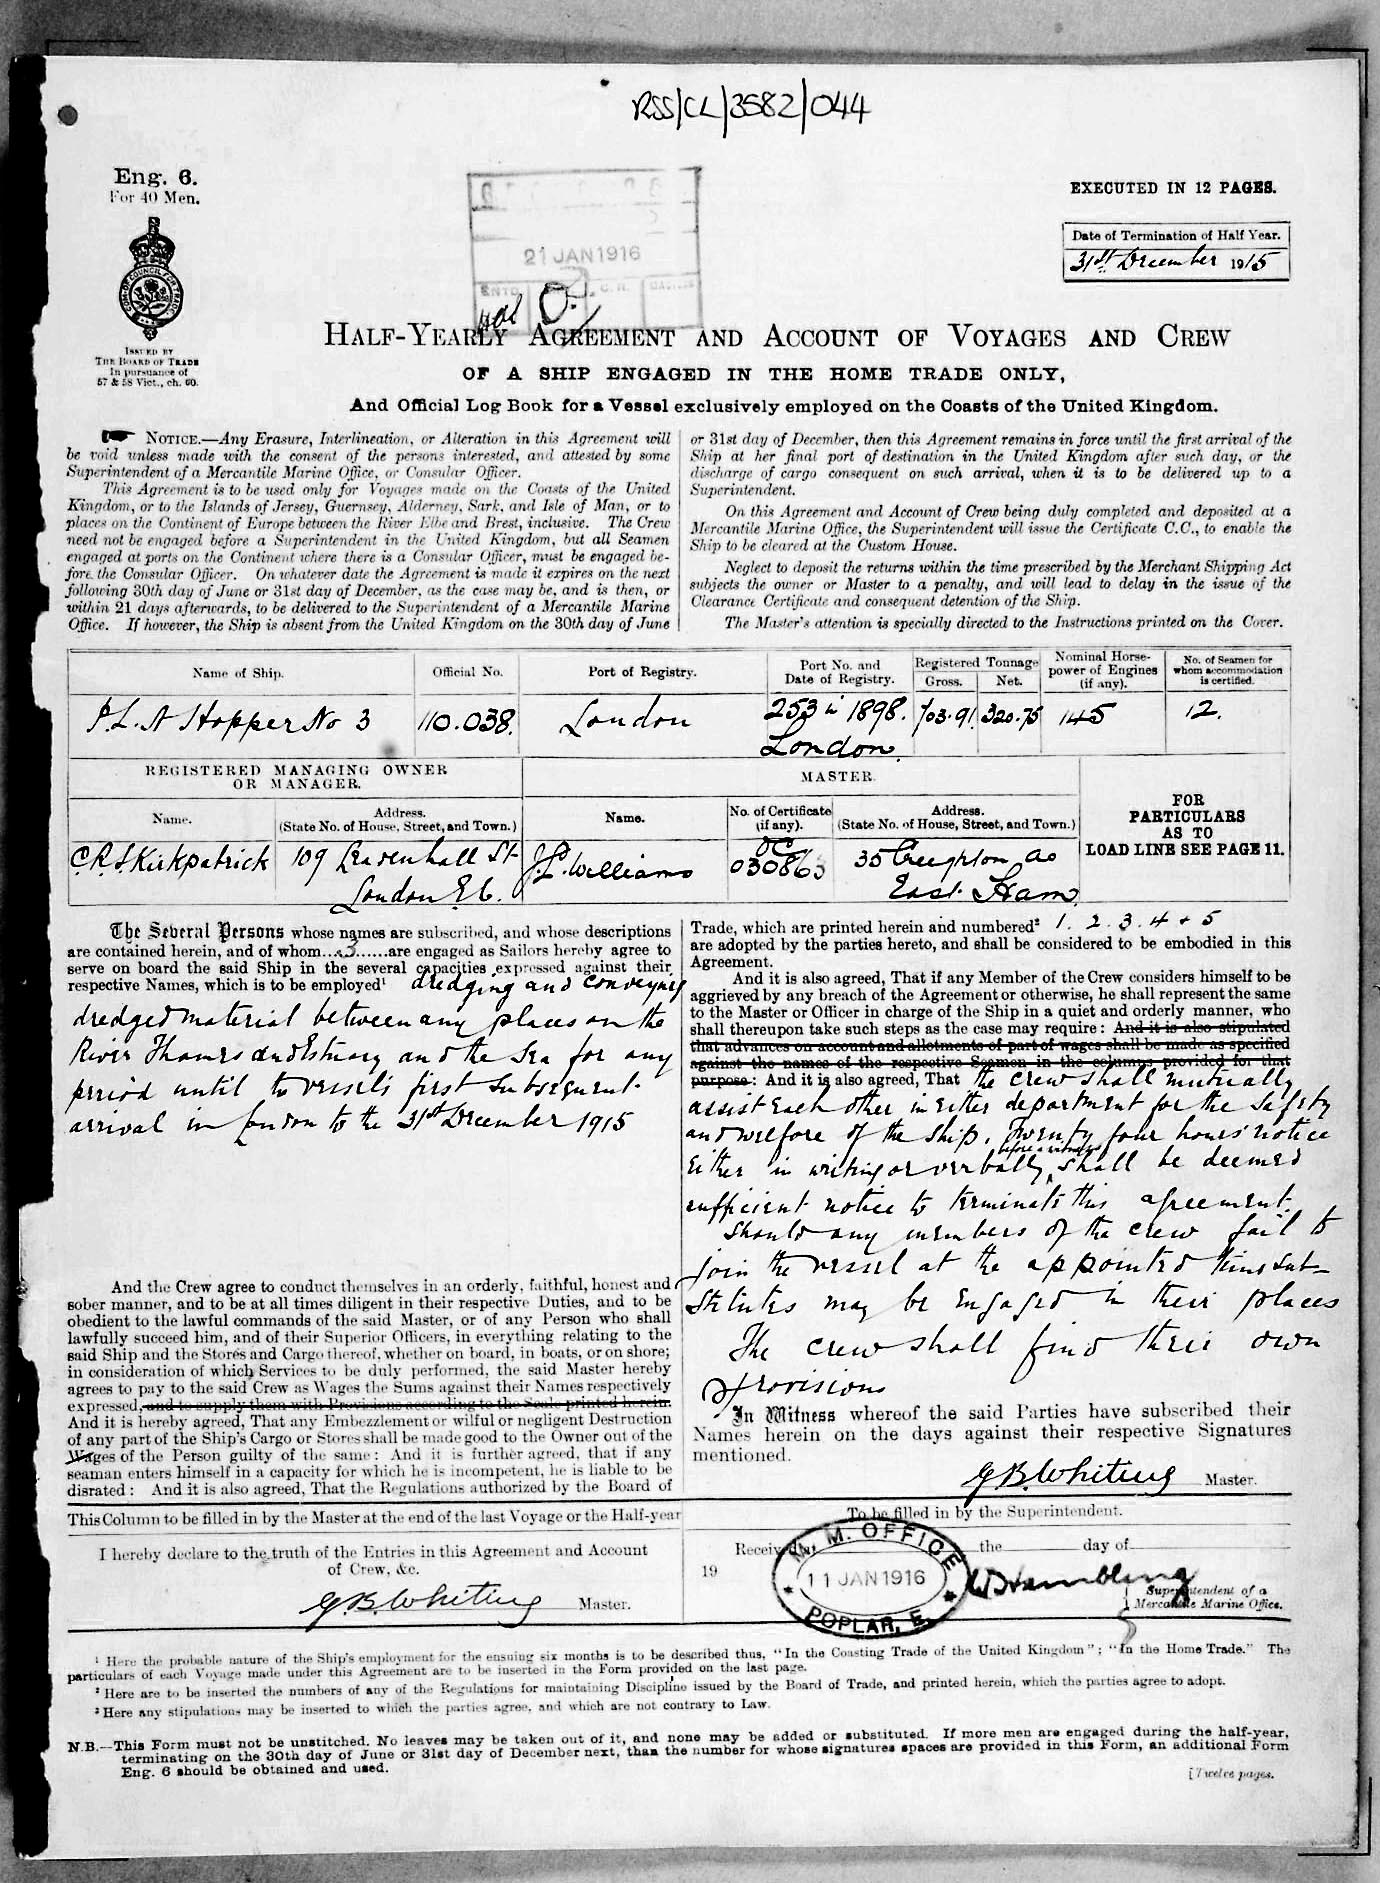 RSS/CL/3582/044
Eng. 6.
For 40 Men.
EXECUTED IN 12 PAGES.
Date of Termination of Half Year.
31st December 1915
21 JAN 1916
ISSUED BY
THE BOARD OF TRADE
In pursuance of
57 & 58 Vict., ch. 60.
HALF-YEARLY AGREEMENT AND ACCOUNT OF VOYAGES AND CREW
OF A SHIP ENGAGED IN THE HOME TRADE ONLY,
And Official Log Book for a Vessel exclusively employed on the Coasts of the United Kingdom.
NOTICE.—Any Erasure, Interlineation, or Alteration in this Agreement will
be void unless made with the consent of the persons interested, and attested by some
Superintendent of a Mercantile Marine Office, or Consular Officer.
This Agreement is to be used only for Voyages made on the Coasts of the United
Kingdom, or to the Islands of Jersey, Guernsey, Alderney, Sark, and Isle of Man, or to
places on the Continent of Europe between the River Elbe and Brest, inclusive. The Crew
need not be engaged before a Superintendent in the United Kingdom, but all Seamen
engaged at ports on the Continent where there is a Consular Officer, must be engaged be-
fore the Consular Officer. On whatever date the Agreement is made it expires on the next
following 30th day of June or 31st day of December, as the case may be, and is then, or
within 21 days afterwards, to be delivered to the Superintendent of a Mercantile Marine
Office. If however, the Ship is absent from the United Kingdom on the 30th day of June
or 31st day of December, then this Agreement remains in force until the first arrival of the
Ship at her final port of destination in the United Kingdom after such day, or the
discharge of cargo consequent on such arrival, when it is to be delivered up to a
Superintendent.
On this Agreement and Account of Crew being duly completed and deposited at a
Mercantile Marine Office, the Superintendent will issue the Certificate C.C., to enable the
Ship to be cleared at the Custom House.
Neglect to deposit the returns within the time prescribed by the Merchant Shipping Act
subjects the owner or Master to a penalty, and will lead to delay in the issue of the
Clearance Certificate and consequent detention of the Ship.
The Master's attention is specially directed to the Instructions printed on the Cover.
Name of Ship. Official No. Port of Registry. Port No. and Date of Registry. Registered Tonnage Gross. Net. Nominal Horse-power of Engines (if any). No. of Seamen for whom accommodation is certified.
P.L.A Hopper No 3 110.038. London 253 in 1898. London. 703.91 320.75 145 12.
REGISTERED MANAGING OWNER
OR MANAGER.
MASTER.
Name. Address. (State No. of House, Street, and Town.) Name. No. of Certificate (if any). Address. (State No. of House, Street, and Town.)
FOR
PARTICULARS
AS TO
LOAD LINE SEE PAGE 11.
C.R.S. Kirkpatrick 109 Leadenhall St London E.C. J.P. Williams OC 030863 35 Creighton Av East Ham
The Several Persons whose names are subscribed, and whose descriptions
are contained herein, and of whom 3 are engaged as Sailors hereby agree to
serve on board the said Ship in the several capacities expressed against their
respective Names, which is to be employed¹ dredging and conveying
dredged material between any places on the
River Thames and Estuary and the Sea for any
period until the vessel's first subsequent
arrival in London to the 31st December 1915
And the Crew agree to conduct themselves in an orderly, faithful, honest and
sober manner, and to be at all times diligent in their respective Duties, and to be
obedient to the lawful commands of the said Master, or of any Person who shall
lawfully succeed him, and of their Superior Officers, in everything relating to the
said Ship and the Stores and Cargo thereof, whether on board, in boats, or on shore;
in consideration of which Services to be duly performed, the said Master hereby
agrees to pay to the said Crew as Wages the Sums against their Names respectively
expressed, and to supply them with Provisions according to the Scale printed herein.
And it is hereby agreed, That any Embezzlement or wilful or negligent Destruction
of any part of the Ship's Cargo or Stores shall be made good to the Owner out of the
Wages of the Person guilty of the same: And it is further agreed, that if any
seaman enters himself in a capacity for which he is incompetent, he is liable to be
disrated: And it is also agreed, That the Regulations authorized by the Board of
Trade, which are printed herein and numbered² 1. 2. 3. 4 + 5
are adopted by the parties hereto, and shall be considered to be embodied in this
Agreement.
And it is also agreed, That if any Member of the Crew considers himself to be
aggrieved by any breach of the Agreement or otherwise, he shall represent the same
to the Master or Officer in charge of the Ship in a quiet and orderly manner, who
shall thereupon take such steps as the case may require: And it is also stipulated
that advances on account and allotments of part of wages shall be made as specified
against the names of the respective Seamen in the columns provided for that
purpose: And it is also agreed, That the crew shall mutually
assist each other in either department for the safety
and welfare of the ship. Twenty four hours' notice
either in writing or verbally before a witness shall be deemed
sufficient notice to terminate this agreement.
Should any members of the crew fail to
join the vessel at the appointed time sub-
stitutes may be engaged in their places
The crew shall find their own
provisions
In Witness whereof the said Parties have subscribed their
Names herein on the days against their respective Signatures
mentioned.
G.B. Whiting Master.
This Column to be filled in by the Master at the end of the last Voyage or the Half-year
I hereby declare to the truth of the Entries in this Agreement and Account
of Crew, &c.
G.B. Whiting Master.
To be filled in by the Superintendent.
Received the day of
19
M. M. OFFICE
11 JAN 1916
POPLAR, E.
W Hambling
Superintendent of a
Mercantile Marine Office.
¹ Here the probable nature of the Ship's employment for the ensuing six months is to be described thus, "In the Coasting Trade of the United Kingdom"; "In the Home Trade." The
particulars of each Voyage made under this Agreement are to be inserted in the Form provided on the last page.
² Here are to be inserted the numbers of any of the Regulations for maintaining Discipline issued by the Board of Trade, and printed herein, which the parties agree to adopt.
³ Here any stipulations may be inserted to which the parties agree, and which are not contrary to Law.
N.B.—This Form must not be unstitched. No leaves may be taken out of it, and none may be added or substituted. If more men are engaged during the half-year,
terminating on the 30th day of June or 31st day of December next, than the number for whose signatures spaces are provided in this Form, an additional Form
Eng. 6 should be obtained and used.
[Twelve pages.